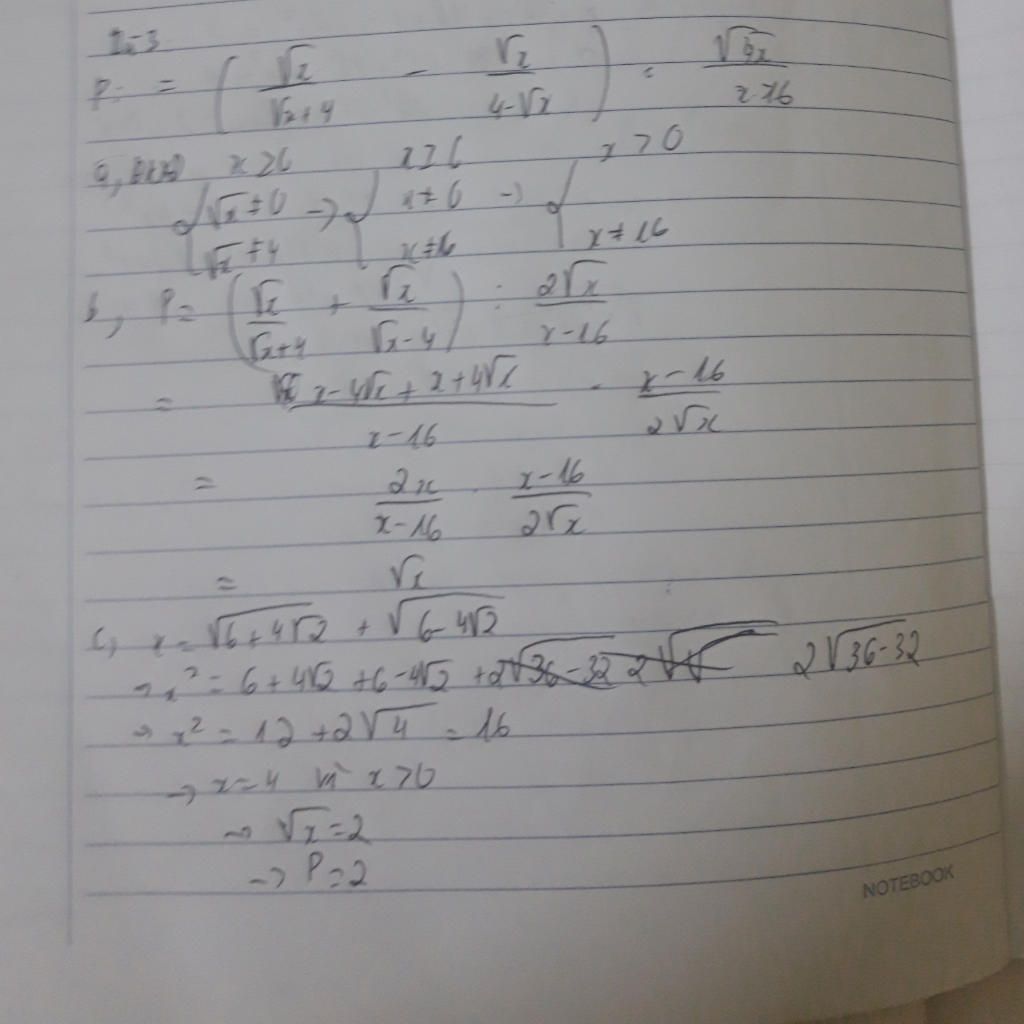 P = ( √x / √x+4 - √x / 4-√x ) : √4x / x-16
a, x ≥ 0 x ≥ 0 x > 0
{ √x ≠ 0 → { x ≠ 0 → {
√x ≠ 4 x ≠ 16 x ≠ 16
b, P = ( √x / √x+4 + √x / √x-4 ) : 2√x / x-16
= x-4√x + x+4√x / x-16 . x-16 / 2√x
= 2x / x-16 . x-16 / 2√x
= √x
c, x = √6+4√2 + √6-4√2
→ x² = 6+4√2 +6-4√2 +2√36-32 2√36-32
→ x² = 12 +2√4 = 16
→ x=4 vì x>0
→ √x = 2
→ P=2
NOTEBOOK